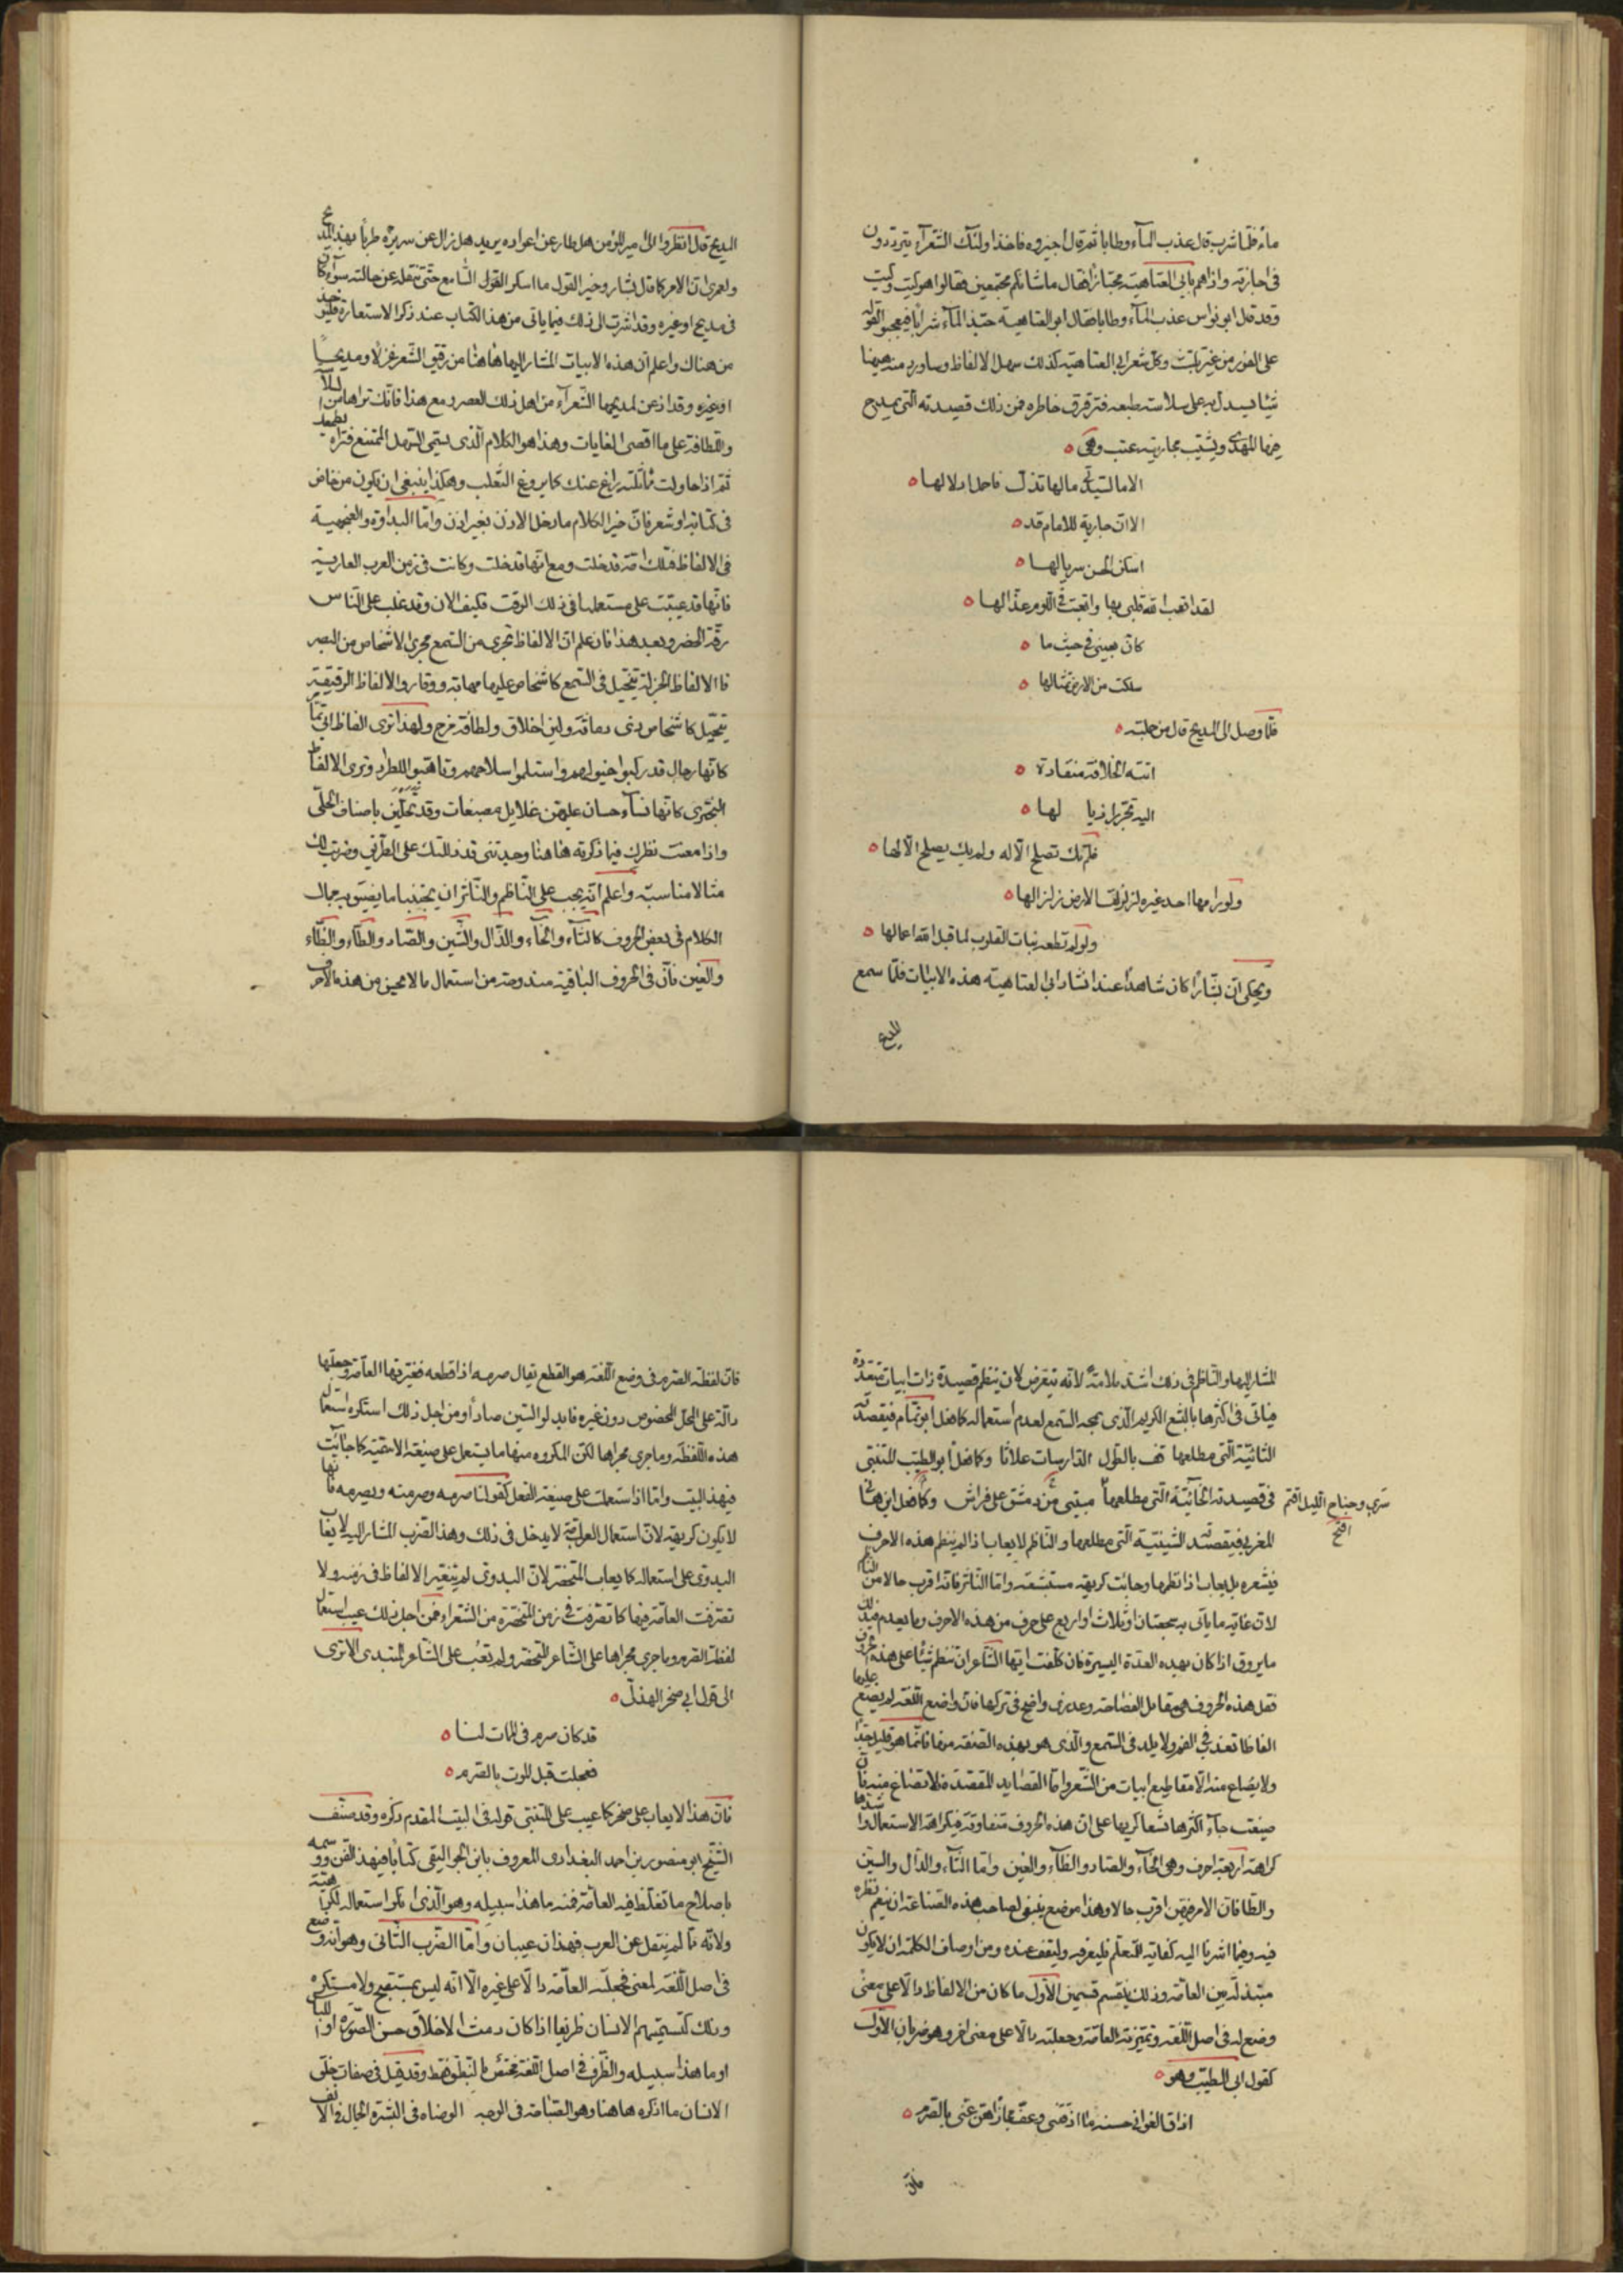 ماء فلما شرب قال عذب الماء وطابا ثم قال اجيزوه فاخذ اولئك الشعراء يترددون
فى اجازته واذا هم بابى العتاهية مجتازا فقال ما شانكم مجتمعين فقالوا هو كيت وكيت
وقد قال ابو نواس عذب الماء وطابا فقال ابو العتاهية حبذا الماء شرابا فعجبوا لقوله
على الفور من غير تلبث وكل شعر ابى العتاهية كذلك سهل الالفاظ وساورد منه ههنا
شيئا يستدل به على سلاسة طبعه وترقرق خاطره فمن ذلك قصيدته التى يمدح
فيها المهدى ويشبب بجاريته عتب وهى
الا ما لسيدتى ما لها تدل فاحمل ادلالها
الا ان جارية للامام قد
اسكن الحسن سربالها
لقد اتعب الله قلبى بها واتعب فى اللوم عذالها
كان بعينى فى حيث ما
سلكت من الارض تمثالها
فلما وصل الى المديح قال من جملته
اتته الخلافة منقادة
اليه تجرر اذيالها
فلم تك تصلح الا له ولم يك يصلح الا لها
ولو رامها احد غيره لزلزلت الارض زلزالها
ولو لم تطعه نيات القلوب لما قبل الله اعمالها
ويحكى ان بشارا كان شاهدا عند انشاد ابى العتاهية هذه الابيات فلما سمع
المديح
المديح قال انظروا الى امير المؤمنين هل طار عن اعواده يريد هل زال عن سريره طربا بهذا المديح
ولعمرى ان الامر كما قال بشار وخير القول ما اسكر القول السامع حتى ينقله عن حالته سواء كان
فى مديح او غيره وقد اشرت الى ذلك فيما ياتى من هذا الكتاب عند ذكر الاستعارة فليؤخذ
من هناك واعلم ان هذه الابيات المشار اليها هاهنا من رقيق الشعر غزلا ومديحا
او غيره وقد اذعن لمديحها الشعراء من اهل ذلك العصر ومع هذا فانك تراها من السلاسة
واللطافة على اقصى الغايات وهذا هو الكلام الذى يسمى السهل الممتنع فتراه يطمعك
ثم اذا حاولت مماثلته راغ عنك كما يروغ الثعلب وهكذا ينبغى ان يكون من خاض
فى كتابة او شعر فان خير الكلام ما دخل الاذن بغير اذن واما البداوة والعنجهية
فى الالفاظ فتلك امة قد خلت ومع انها قد خلت وكانت فى زمن العرب العاربة
فانها قد عيبت على مستعملها فى ذلك الوقت فكيف الان وقد غلب على الناس
رقة الحضر وبعد هذا فاعلم ان الالفاظ تجرى من السمع مجرى الاشخاص من البصر
فالالفاظ الجزلة تتخيل فى السمع كاشخاص عليها مهابة ووقار والالفاظ الرقيقة
تتخيل كاشخاص ذى دماثة ولين اخلاق ولطافة مزاج ولهذا ترى الفاظ ابى تمام
كانها رجال قد ركبوا خيولهم واستلموا سلاحهم وتاهبوا للطراد وترى الالفاظ
البحترى كانها نساء حسان عليهن غلايل مصبغات وقد تحلين باصناف الحلى
واذا امعنت نظرك فيما ذكرته هاهنا وجدتنى قد دللتك على الطريق وضربت لك
مثالا مناسبا واعلم انه يجب على الناظم والناثر ان يجتنبا ما يضيق به مجال
الكلام فى بعض الحروف كالثاء والخاء والذال والشين والصاد والطاء والظاء
والغين فان فى الحروف الباقية مندوحة من استعمال ما لا يحسن من هذه الاحرف
المشار اليها والناظم فى ذلك اشد ملامة لانه يتعرض لان ينظم قصيدة ذات ابيات متعددة
فياتى فى اكثرها بالبشع الكريه الذى يمجه السمع لعدم استعماله كما فعل ابو تمام فى قصيدته
الثائية التى مطلعها قف بالطلول الدارسات علاثا وكما فعل ابو الطيب المتنبى
فى قصيدته التى مطلعها مبيتى من دمشق على فراش وكما فعل ابن هانى
سرى وجناح الليل اقتم افتخ
المغربى فى قصيدته التى مطلعها والناظم لا يعاب اذا لم ينظم هذه الاحرف
فى شعره بل يعاب اذا نظمها وجاءت كريهة مستبشعة واما الناثر فانه اقرب حالا من الناظم
لان غاية ما ياتى به سجعتان او ثلاث او اربع على حرف من هذه الاحرف وما يعدم فى ذلك
ما يروق اذا كان بهذه العدة اليسيرة فان كلفت ايها الشاعر ان تنظم شيئا على هذه الحروف
فقل هذه الحروف هى مقاتل الفصاحة وعذرى واضح فى تركها فان واضع اللغة لم يضع عليها
الفاظا تعذب فى الفم ولا تلذ فى السمع والذى هو بهذه الصفة منها فانما هو قليل جدا
ولا يصاغ منه الا مقاطيع ابيات من الشعر واما القصايد المقصدة فلا تصاغ منه فان
صيغت جاء اكثرها بشعا كريها على ان هذه الحروف متفاوتة فى كراهة الاستعمال واشدها
كراهة اربعة احرف وهى الخاء والصاد والظاء والغين واما الثاء والذال والشين
والطا فان الامر فيهن اقرب حالا وهذا موضع ينبغى لصاحب هذه الصناعة ان ينعم نظره
فيه وفيما اشرنا اليه كفاية للمتعلم فليعرفه وليقف عنده ومن اوصاف الكلمة ان لا يكون
مبتذلة بين العامة وذلك ينقسم قسمين الاول ما كان من الالفاظ دالا على معنى
وضع له فى اصل اللغة وغيرته العامة وجعلته دالا على معنى اخر وهو ضربان الاول
كقول ابى الطيب وهو
اذاق الغوانى حسنه ما اذقننى وعف فجازاهن عنى بالصرم
فان
فان لفظة الصرم فى وضع اللغة هو القطع يقال صرمه اذا قطعه فغيرتها العامة وجعلتها
دالة على المحل المخصوص دون غيره فابدلوا السين صادا ومن اجل ذلك استكره استعمال
هذه اللفظة وما جرى مجراها لكن المكروه منها ما يستعمل على صيغة الاسمية كما جائت
فى هذا البيت واما اذا استعملت على صيغة الفعل كقولنا صرمه وصرمته ويصرمه فانها
لا يكون كريهة لان استعمال العامة لا يدخل فى ذلك وهذا الضرب المشار اليه لا يعاب
البدوى على استعماله كما يعاب المتحضر لان البدوى لم يتغير الالفاظ فى زمنه ولا
تصرفت العامة فيها كما تصرفت فى زمن المتحضرة من الشعراء فمن اجل ذلك عيب استعمال
لفظة الصرم وما جرى مجراها على الشاعر المتحضر ولم تعب على الشاعر المتبدى الا ترى
الى قول ابى صخر الهذلى
قد كان صرم فى الممات لنا
فعجلت قبل الموت بالصرم
فان هذا لا يعاب على صخر كما عيب على المتنبى قوله فى البيت المقدم ذكره وقد صنف
الشيخ ابو منصور بن احمد البغدادى المعروف بابن الجواليقى كتابا فى هذا الفن ووسمه
باصلاح ما تغلط فيه العامة فمنه ما هذا سبيله وهو الذى انكر استعماله لكراهته
ولانه مما لم ينقل عن العرب فهذان عيبان واما الضرب الثانى وهو انه وضع
فى اصل اللغة لمعنى فجعلته العامة دالا على غيره الا انه ليس بمستقبح ولا مستكره
وذلك كتسميتهم الانسان ظريفا اذا كان دمث الاخلاق حسن الصورة او اللباس
او ما هذا سبيله والظرف فى اصل اللغة مختص بالنطق فقط وقد قيل فى صفات خلق
الانسان ما اذكره هاهنا وهو الصباحة فى الوجه الوضاءة فى البشرة الجمال فى الانف